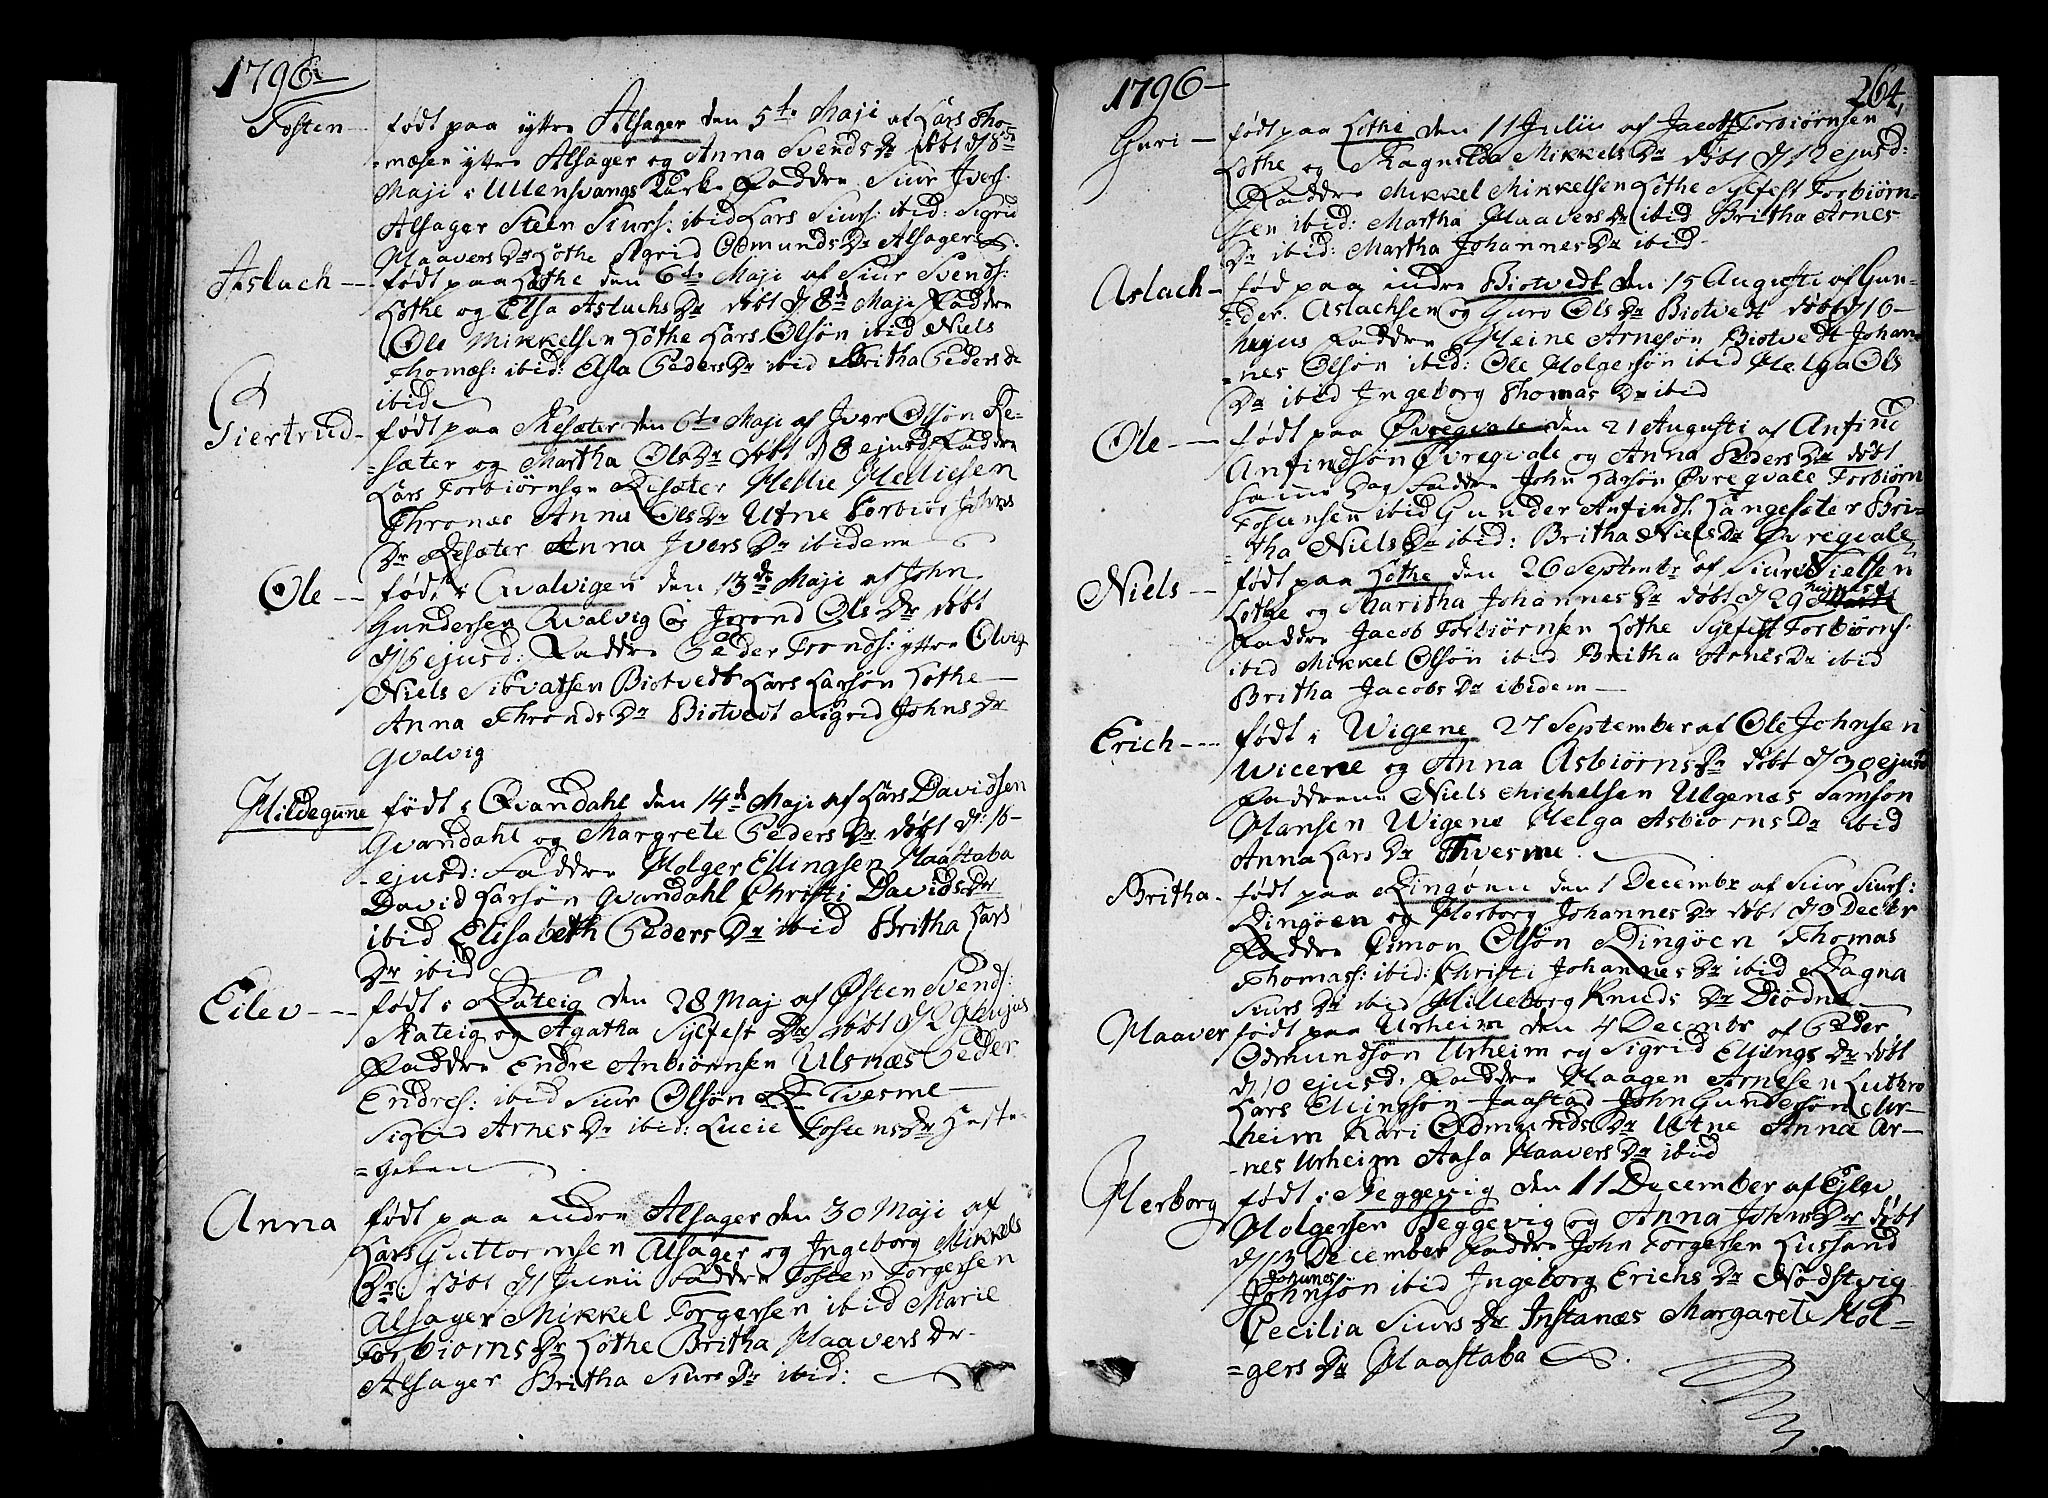 1796
Tosten født paa yttre Alsager den 5te Maji af Lars Tho-
=mæsen yttre Alsager og Anna Svends Dr døbt d 8de
Maji i Ullensvangs Kirke Faddre Siur Ivers:
Alsager Steen Siurs: ibid Lars Siurs: ibid: Sigrid
Haavers Dr Lothe Sigrid Odmunds Dr Alsager
Aslach født paa Lothe den 6te Maji af Siur Svends:
Lothe og Elsa Aslachs Dr døbt d 8de Maji Faddre
Ole Mikkelsen Lothe Lars Olsøn ibid Niels
Thomæs: ibid: Elsa Peders Dr ibid Britha Peders dr
ibid
Giertrud født paa Resæter den 6te Maji af Iver Olsøn Re-
=sæter og Martha Ols Dr døbt d 8 ejusd: Faddre
Lars Torbiørnsen Resæter Helje Heljesen
Thronæs Anna Ols Dr Utne Torbiør Johns
Dr Resæter Anna Ivers Dr ibidem
Ole født i Qvalvigen den 13de Maji af John
Gundersen Qvalvig og Jorond Ols Dr døbt
d 16 ejusd: Faddre Peder Tronds: yttre Olvig
Niels Sibvatsen Biotvedt Lars Larsøn Lothe
Anna Thronds Dr Biotvedt Sigrid Johns Dr
Qvalvig
Hildegunne født i Qvandahl den 14de Maji af Lars Davidsen
Qvandahl og Margrete Peders Dr døbt d: 16
ejusd: Faddre Holger Ellingsen Haastaba
David Larsøn Qvandahl Christi Davids Dr
ibid Elisabeth Peders Dr ibid Britha Lars
Dr ibid
Eilev født i Skateig den 28 Maj af Østen Svends:
Skateig og Agatha Sylfest Dr døbt d 29 hujus
Faddre Endre Anbiørnsen Ulsnæs Peder
Endres: ibid Siur Olsøn Tvesme
Sigrid Arnes Dr ibid: Lucie Tostens Dr Heste-
=heten
Anna født paa indre Alsager den 30 Maji af
Lars Guttormsen Alsager og Ingeborg Mikkels
Dr: døbt d 1 Junii Faddre Tosten Torgersen
Alsager Mikkel Torgersen ibid Marie
Torbiorns Dr Lothe Britha Haavers Dr
Alsager Britha Siurs Dr ibid:
1796
264,
Guri født paa Lothe den 11 Julii af Jacob Torbiørnsen
Lothe og Ragnilda Mikkels Dr døbt d 12 ejusd:
Faddre Mikkel Mikkelsen Lothe Sylfest Torbiørn-
sen ibid: Martha Haavers Dr ibid Britha Arnes
Dr ibid: Martha Johannes Dr ibid
Aslach fød paa indre Biotvedt den 15 Augusti af Gun-
=der Aslachsen og Guro Ols Dr Biotvedt døbt d 10
hujus Faddre Heine Arnesøn Biotvedt Johan-
=nes Olsøn ibid: Ole Holgersøn ibid Helga Ols
Dr ibid Ingeborg Thomas Dr ibid
Ole født paa Øvreqvale den 21 Augusti af Anfind
Anfindsøn Øvreqvale og Anna Peders Dr døbt
samme Dag Faddre John Larsøn Øvreqvale Torbiørn
Tostensen ibid Gunder Anfinds: Langesæter Bri-
=tha Niels Dr ibid: Britha Niels Dr Øvreqvale
Niels født paa Lothe den 26 Septembr af Siur Nielsen
Lothe og Maritha Johannes Dr døbt d 29 hujus
Faddre Jacob Torbiørnsen Lothe Sylfest Torbiørns:
ibid Mikkel Olsøn ibid Britha Arnes Dr ibid
Britha Jacobs Dr ibidem
Erich født i Wigene 27 September af Ole Johnsen
Wigene og Anna Asbiørns Dr døbt d 30 ejusd
Faddrene Niels Michelsen Ulgenæs Samson
Hansen Wigene Helga Asbiorns Dr ibid
Anna Lars Dr Thvesme.
Britha født paa Ringøen den 1 Decembr af Siur Siurs:
Ringøen og Herborg Johannes Dr døbt d 3 Decbr
Faddre Simon Olsøn Ringøen Thomas
Thomas: ibid: Christi Johannes Dr ibid Ragna
Siurs Dr ibid Hilleborg Knuds Dr Diødne
Haaver født paa Urheim den 4 Decembr af Peder
Odmundsøn Urheim og Sigrid Ellings Dr døbt
d 10 ejusd: Faddre Haagen Arnesen Luthro
Lars Ellingsøn Jaastad John Gundersøn Ur-
heim Kari Odmunds Dr Utne Anna Ar-
-nes Urheim Aasa Haavers Dr ibid
Herborg født i Neggevig den 11 December af Ejlev
Holgersen Neggevig og Anna Johns Dr døbt
d 13 December Faddre John Torgersen Lussand
Johanes
Johnsøn ibid Ingeborg Erichs Dr Nodstvig
Cecilia Siurs Dr Instanæs Margarete Hol=
=gers Dr Haastaba